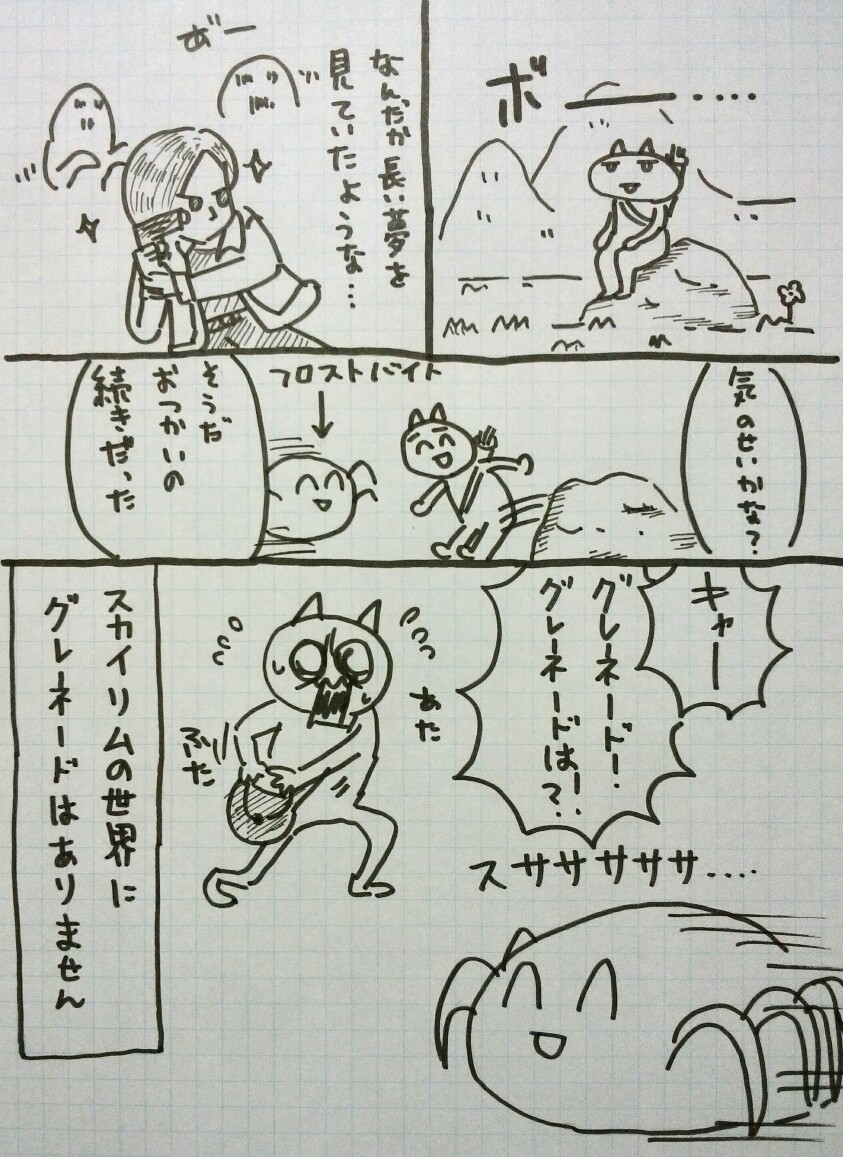 ボー‥‥
なんだか長い夢を
見ていたような…
あ゛ー
気のせいかな?
フロストバイト
そうだ
おつかいの
続きだった
キャー
グレネード!
グレネードは!?
スササササ‥‥
あた
ふた
スカイリムの世界に
グレネードはありません